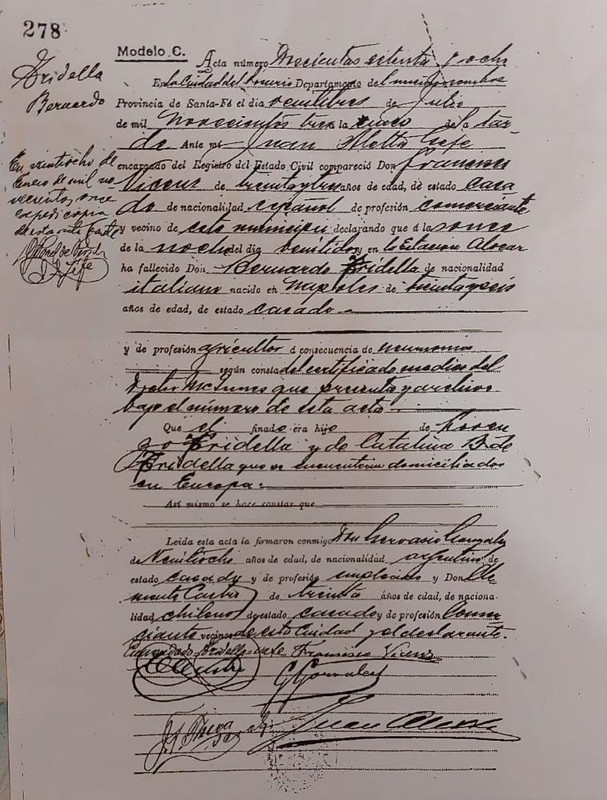 278
Modelo C. Acta número Doscientas setenta y ocho
Fridella
Bernardo
En la Ciudad del Rosario Departamento del mismo nombre
Provincia de Santa-Fé el dia veintitres de Julio
de mil Novecientos tres a la cinco de la tar-
de Ante mi Juan Gefe
encargado del Registro del Estado Civil compareció Don Francisco
En veintiocho de
Enero de mil no-
vecientos once
expedi copia
de esta acta
Gefe
Vicens de treinta y tres años de edad, de estado Casa
do de nacionalidad español de profesión comerciante
y vecino de este municipio declarando que á la once
de la noche del dia veintidos y en la Estacion Alvear
ha fallecido Don Bernardo Fridella de nacionalidad
italiano nacido en Napoles de treinta y seis
años de edad, de estado casado
y de profesión agricultor á consecuencia de neumonia
según consta del certificado medico del
Doctor que presenta y archivo
bajo el número de esta acta.
Que el finado era hijo de Loren
zo Fridella y de Catalina B. de
Fridella que se encuentran domiciliados
en Europa.
Así mismo se hace constar que
Leida esta acta la firmaron conmigo Don Gervasio Gonzalez
de Veintiocho años de edad, de nacionalidad argentino de
estado casado y de profesión empleado y Don Cle
mente Castro de treinta años de edad, de naciona-
lidad chileno de estado casado y de profesión Comer
ciante vecinos de esta Ciudad y el declarante.
Enmendado Fridella vale Francisco Vicens
G Gonzalez
Juan